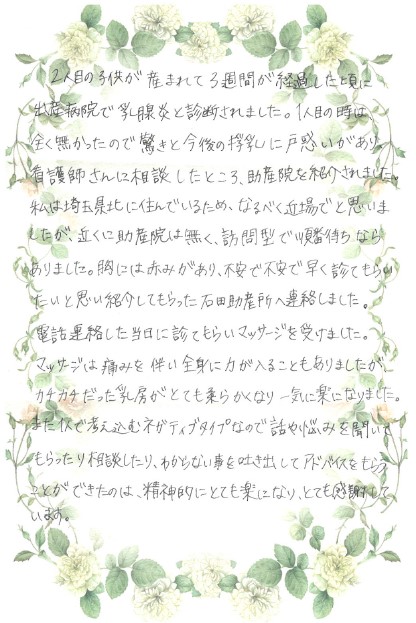 2人目の子供が産まれて3週間が経過した頃に
出産病院で乳腺炎と診断されました。1人目の時は
全く無かったので驚きと今後の授乳に戸惑いがあり
看護師さんに相談したところ、助産院を紹介されました。
私は埼玉県北に住んでいるため、なるべく近場でと思いま
したが、近くに助産院は無く、訪問型で順番待ちなら
ありました。胸には赤みがあり、不安で不安で早く診てもらい
たいと思い紹介してもらった石田助産所へ連絡しました。
電話連絡した当日に診てもらいマッサージを受けました。
マッサージは痛みを伴い全身に力が入ることもありましたが、
カチカチだった乳房がとても柔らかくなり一気に楽になりました。
また私で考え込むネガティブタイプなので話や悩みを聞いて
もらったり相談したり、わからない事を吐き出してアドバイスをもらう
ことができたのは、精神的にとても楽になり、とても感謝して
います。